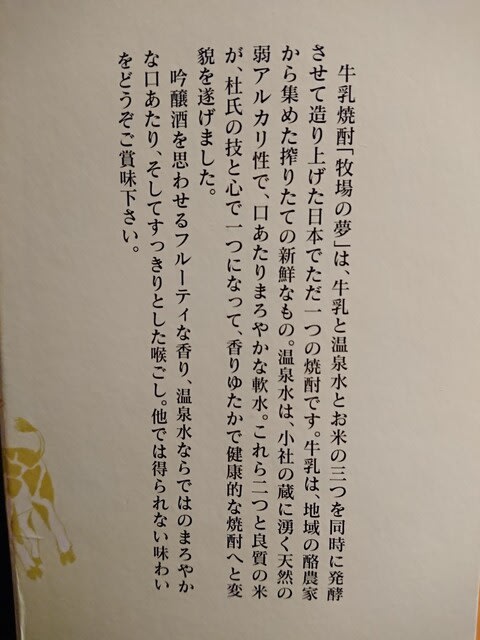 牛乳焼酎「牧場の夢」は、牛乳と温泉水とお米の三つを同時に発酵
させて造り上げた日本でただ一つの焼酎です。牛乳は、地域の酪農家
から集めた搾りたての新鮮なもの。温泉水は、小社の蔵に湧く天然の
弱アルカリ性で、口あたりまろやかな軟水。これら二つと良質の米
が、杜氏の技と心で一つになって、香りゆたかで健康的な焼酎へと変
貌を遂げました。
吟醸酒を思わせるフルーティな香り、温泉水ならではのまろやか
な口あたり、そしてすっきりとした喉ごし。他では得られない味わい
をどうぞご賞味下さい。